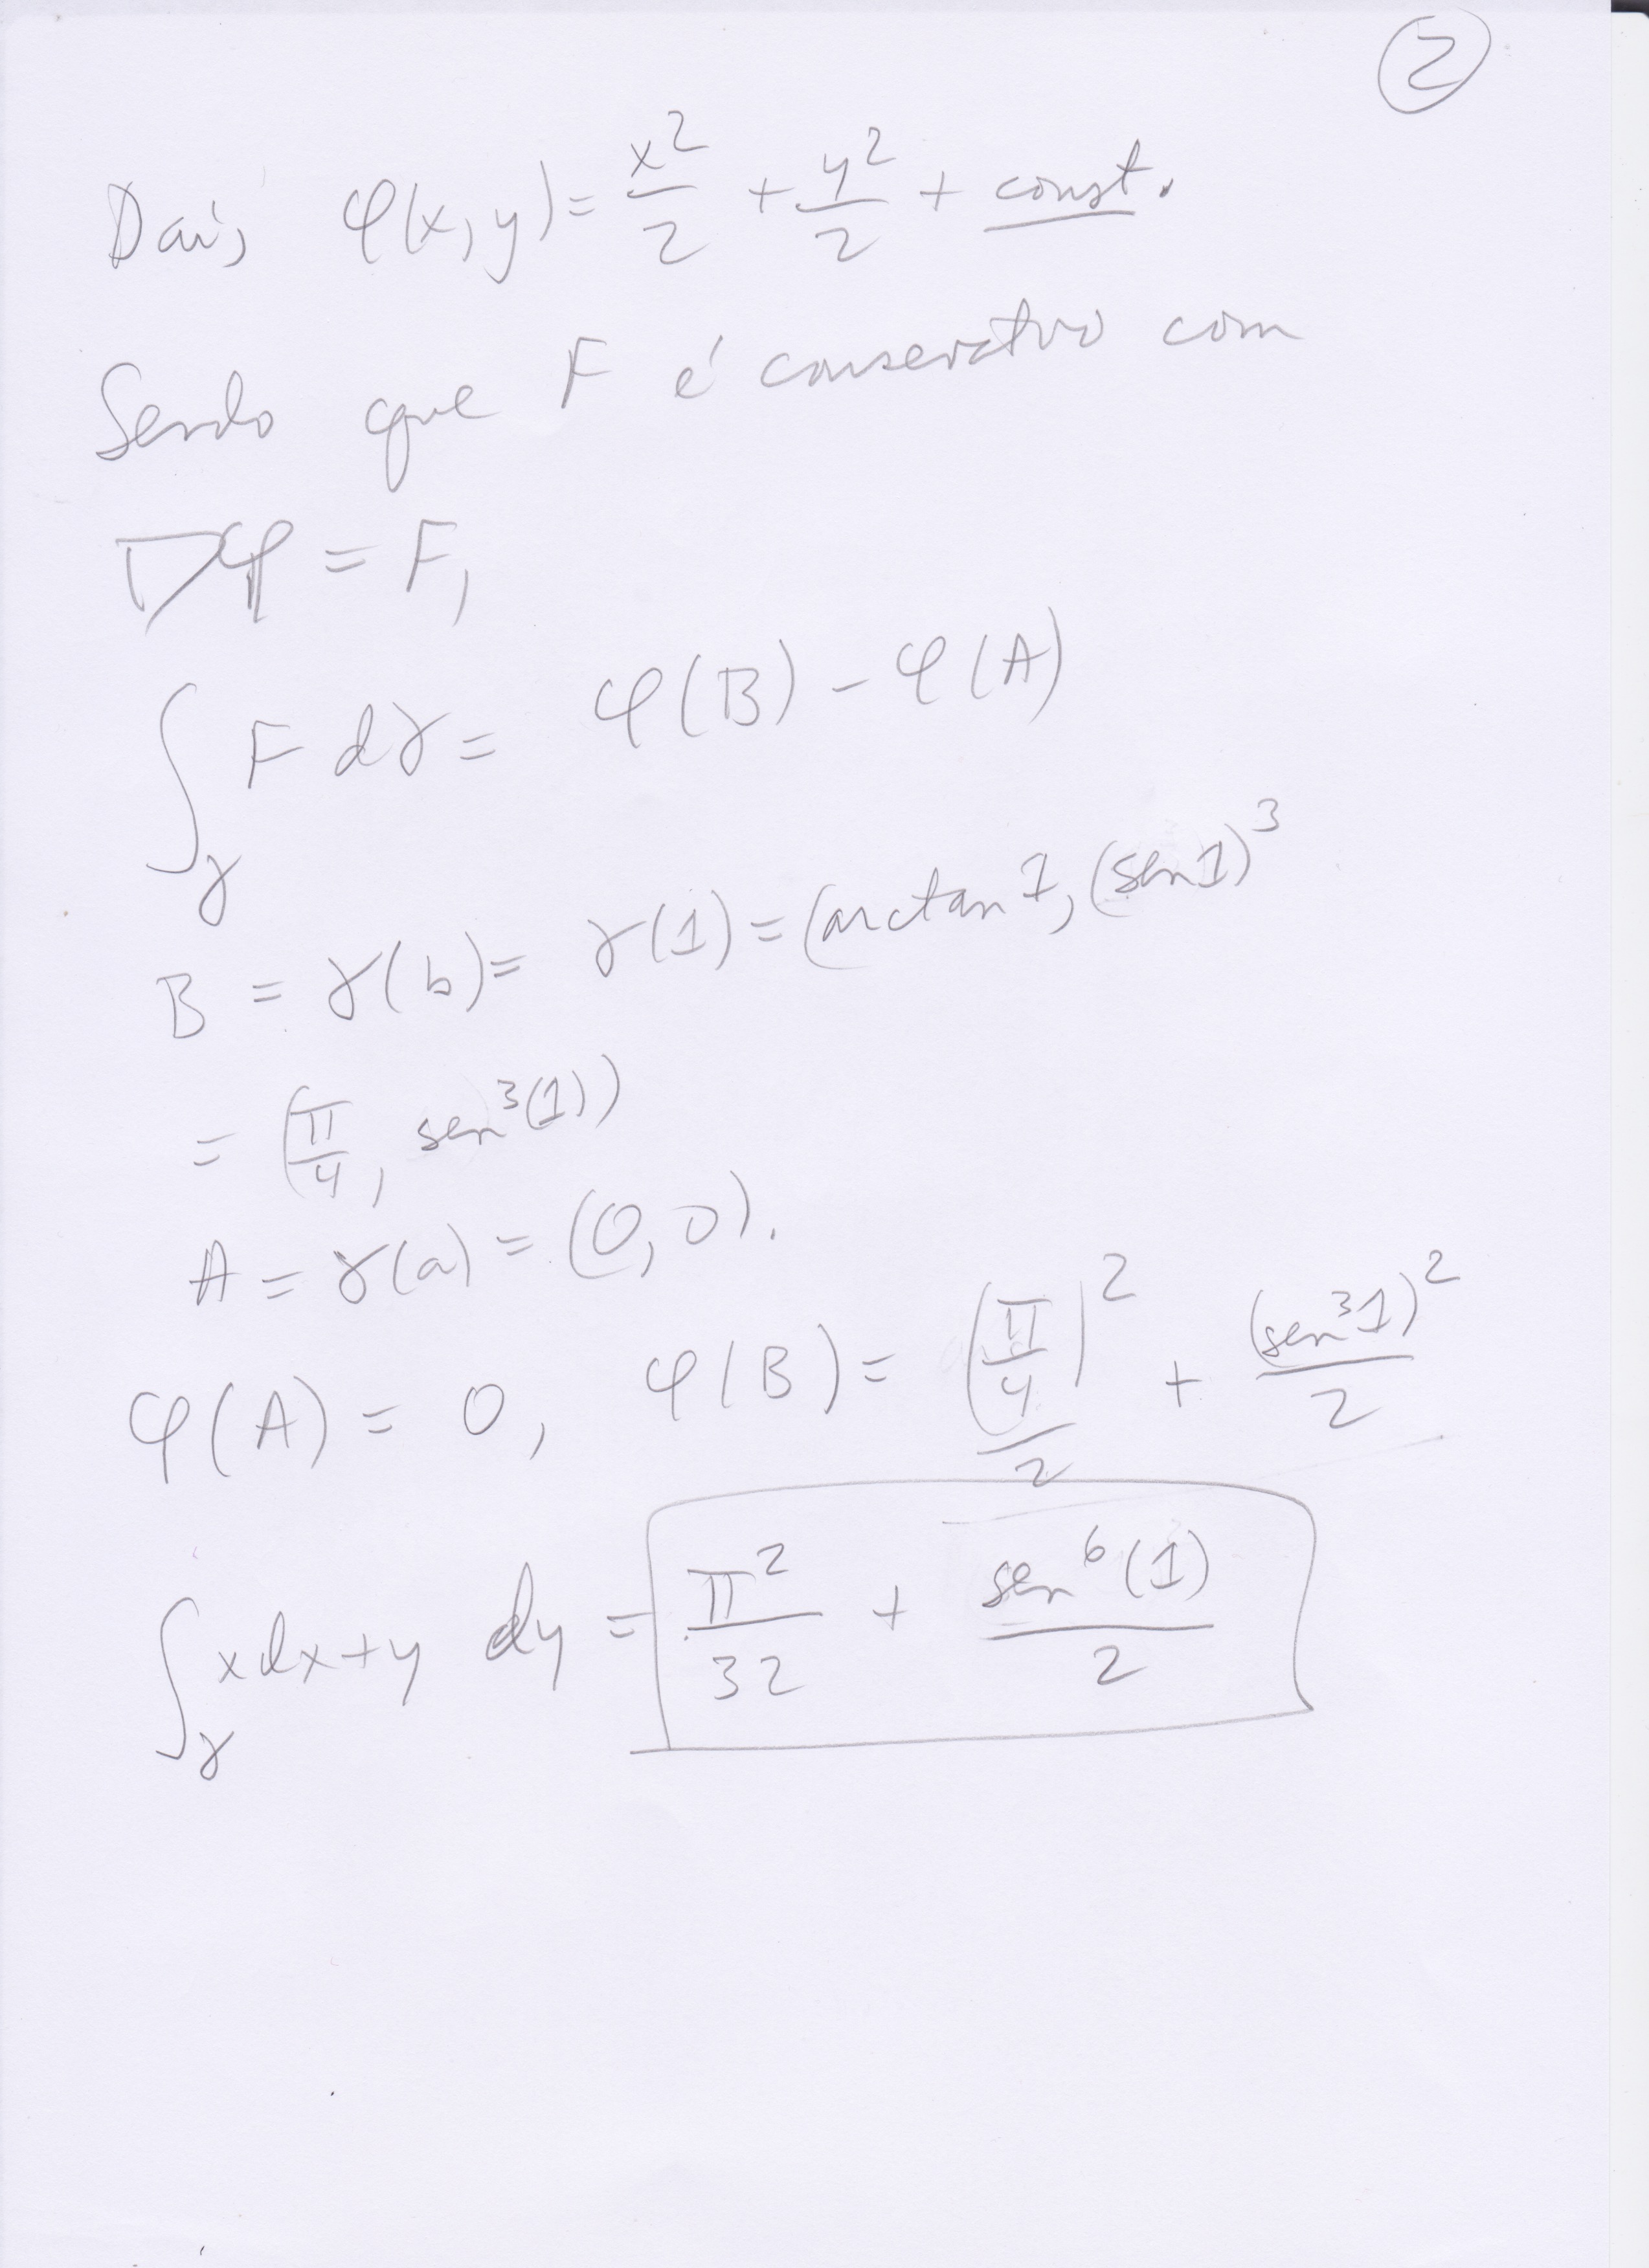 2
Daí, φ(x,y) = x²/2 + y²/2 + const.
Sendo que F é conservativo com
∇φ = F,
∫_γ F dγ = φ(B) - φ(A)
B = γ(b) = γ(1) = (arctan 1, (sen 1)³
= (π/4, sen³(1))
A = γ(a) = (0,0).
φ(A) = 0, φ(B) = (π/4)²/2 + (sen³1)²/2
∫_γ xdx+y dy = π²/32 + sen⁶(1)/2